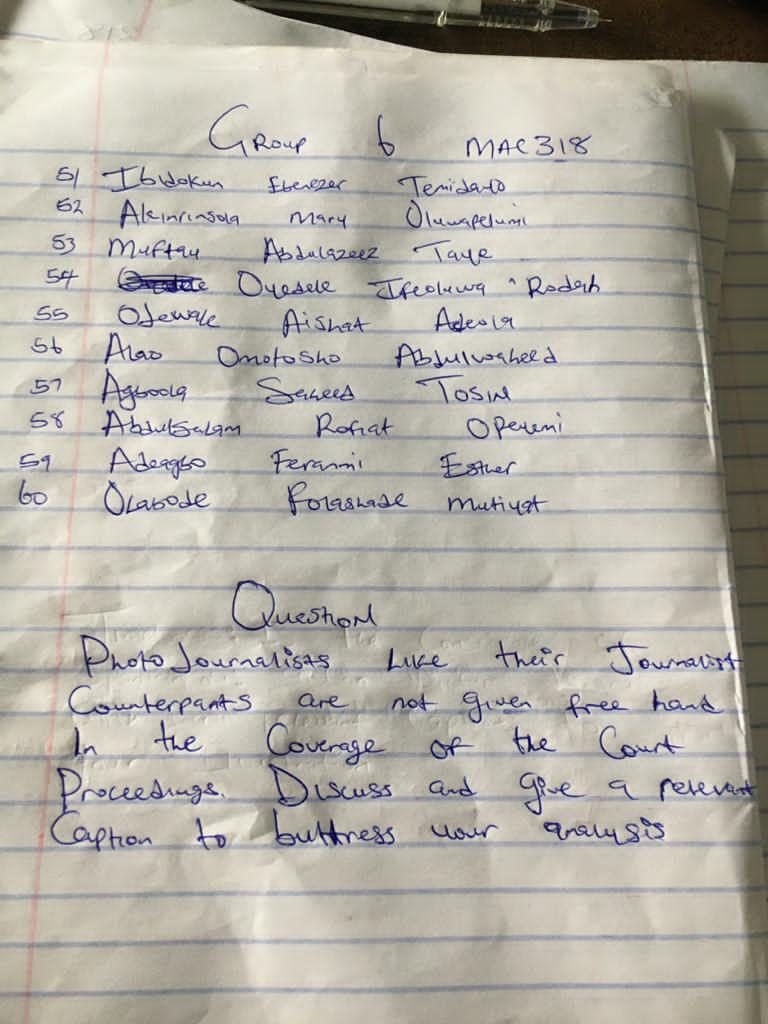 Group 6 MAC318
51 Ibidokun Ebenezer Temidayo
52 Akinrinsola Mary Oluwapelumi
53 Muftau Abdulazeez Taye
54 Oyedele Ifeoluwa Rodah
55 Ojewale Aishat Adeola
56 Alao Omotosho Abdulwaheed
57 Agboola Saheed Tosin
58 Abdulsalam Rofiat Opeyemi
59 Adeagbo Feranmi Esther
60 Olabode Folashade Mutiyat
Question
Photo Journalists Like their Journalist
Counterpants are not given free hand
In the Coverage of the Court
Proceedings. Discuss and give a relevant
Caption to buttress your analysis